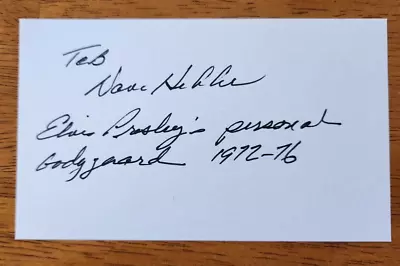 TCB
Dave Hebler
Elvis Presley's personal
bodyguard 1972-76